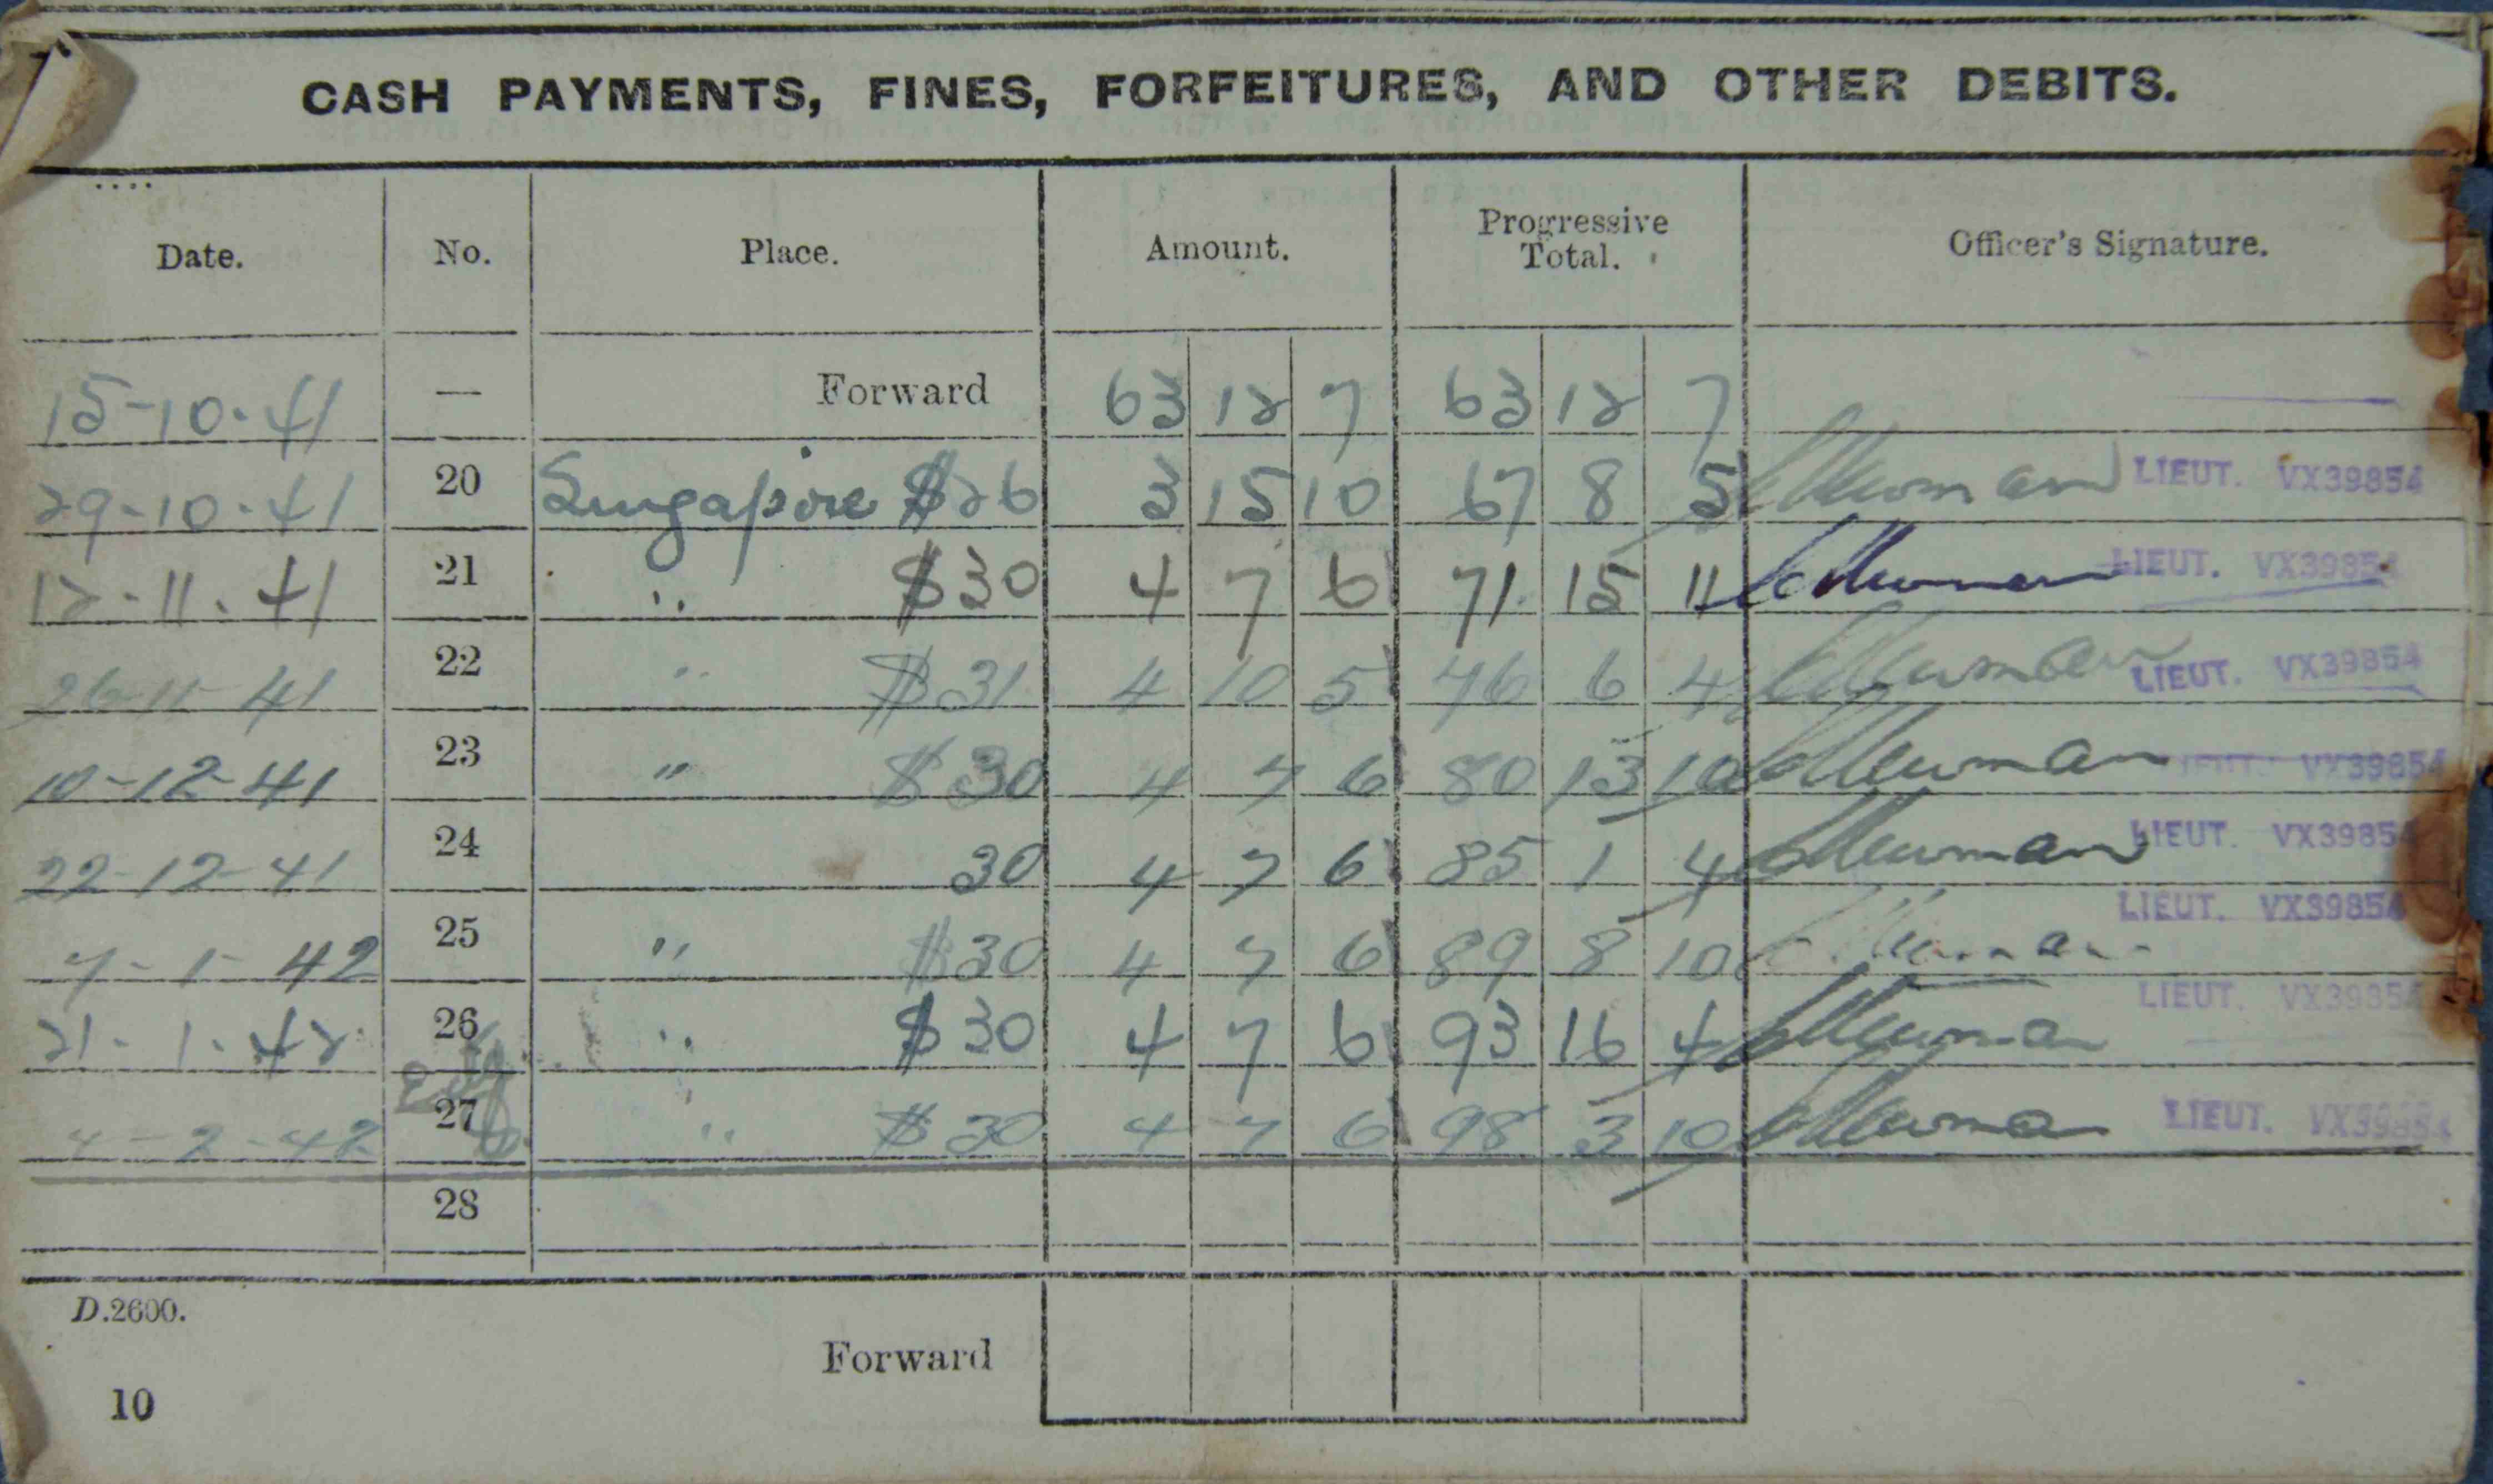 CASH PAYMENTS, FINES, FORFEITURES, AND OTHER DEBITS.
Date. No. Place. Amount. Progressive Total. Officer's Signature.
15-10-41 — Forward 63 12 7 63 12 7
29-10-41 20 Singapore $26 3 15 10 67 8 5 Newman LIEUT. VX39854
12-11-41 21 " $30 4 7 6 71 15 11 Newman LIEUT. VX39854
26-11-41 22 " $31 4 10 5 76 6 4 Newman LIEUT. VX39854
10-12-41 23 " $30 4 7 6 80 13 10 Newman LIEUT. VX39854
22-12-41 24 30 4 7 6 85 1 4 Newman LIEUT. VX39854
7-1-42 25 " $30 4 7 6 89 8 10 Newman LIEUT. VX39854
21-1-42 26 " $30 4 7 6 93 16 4 Newman LIEUT. VX39854
4-2-42 27 " $30 4 7 6 98 3 10 Newman LIEUT. VX39854
28
D.2600.
Forward
10